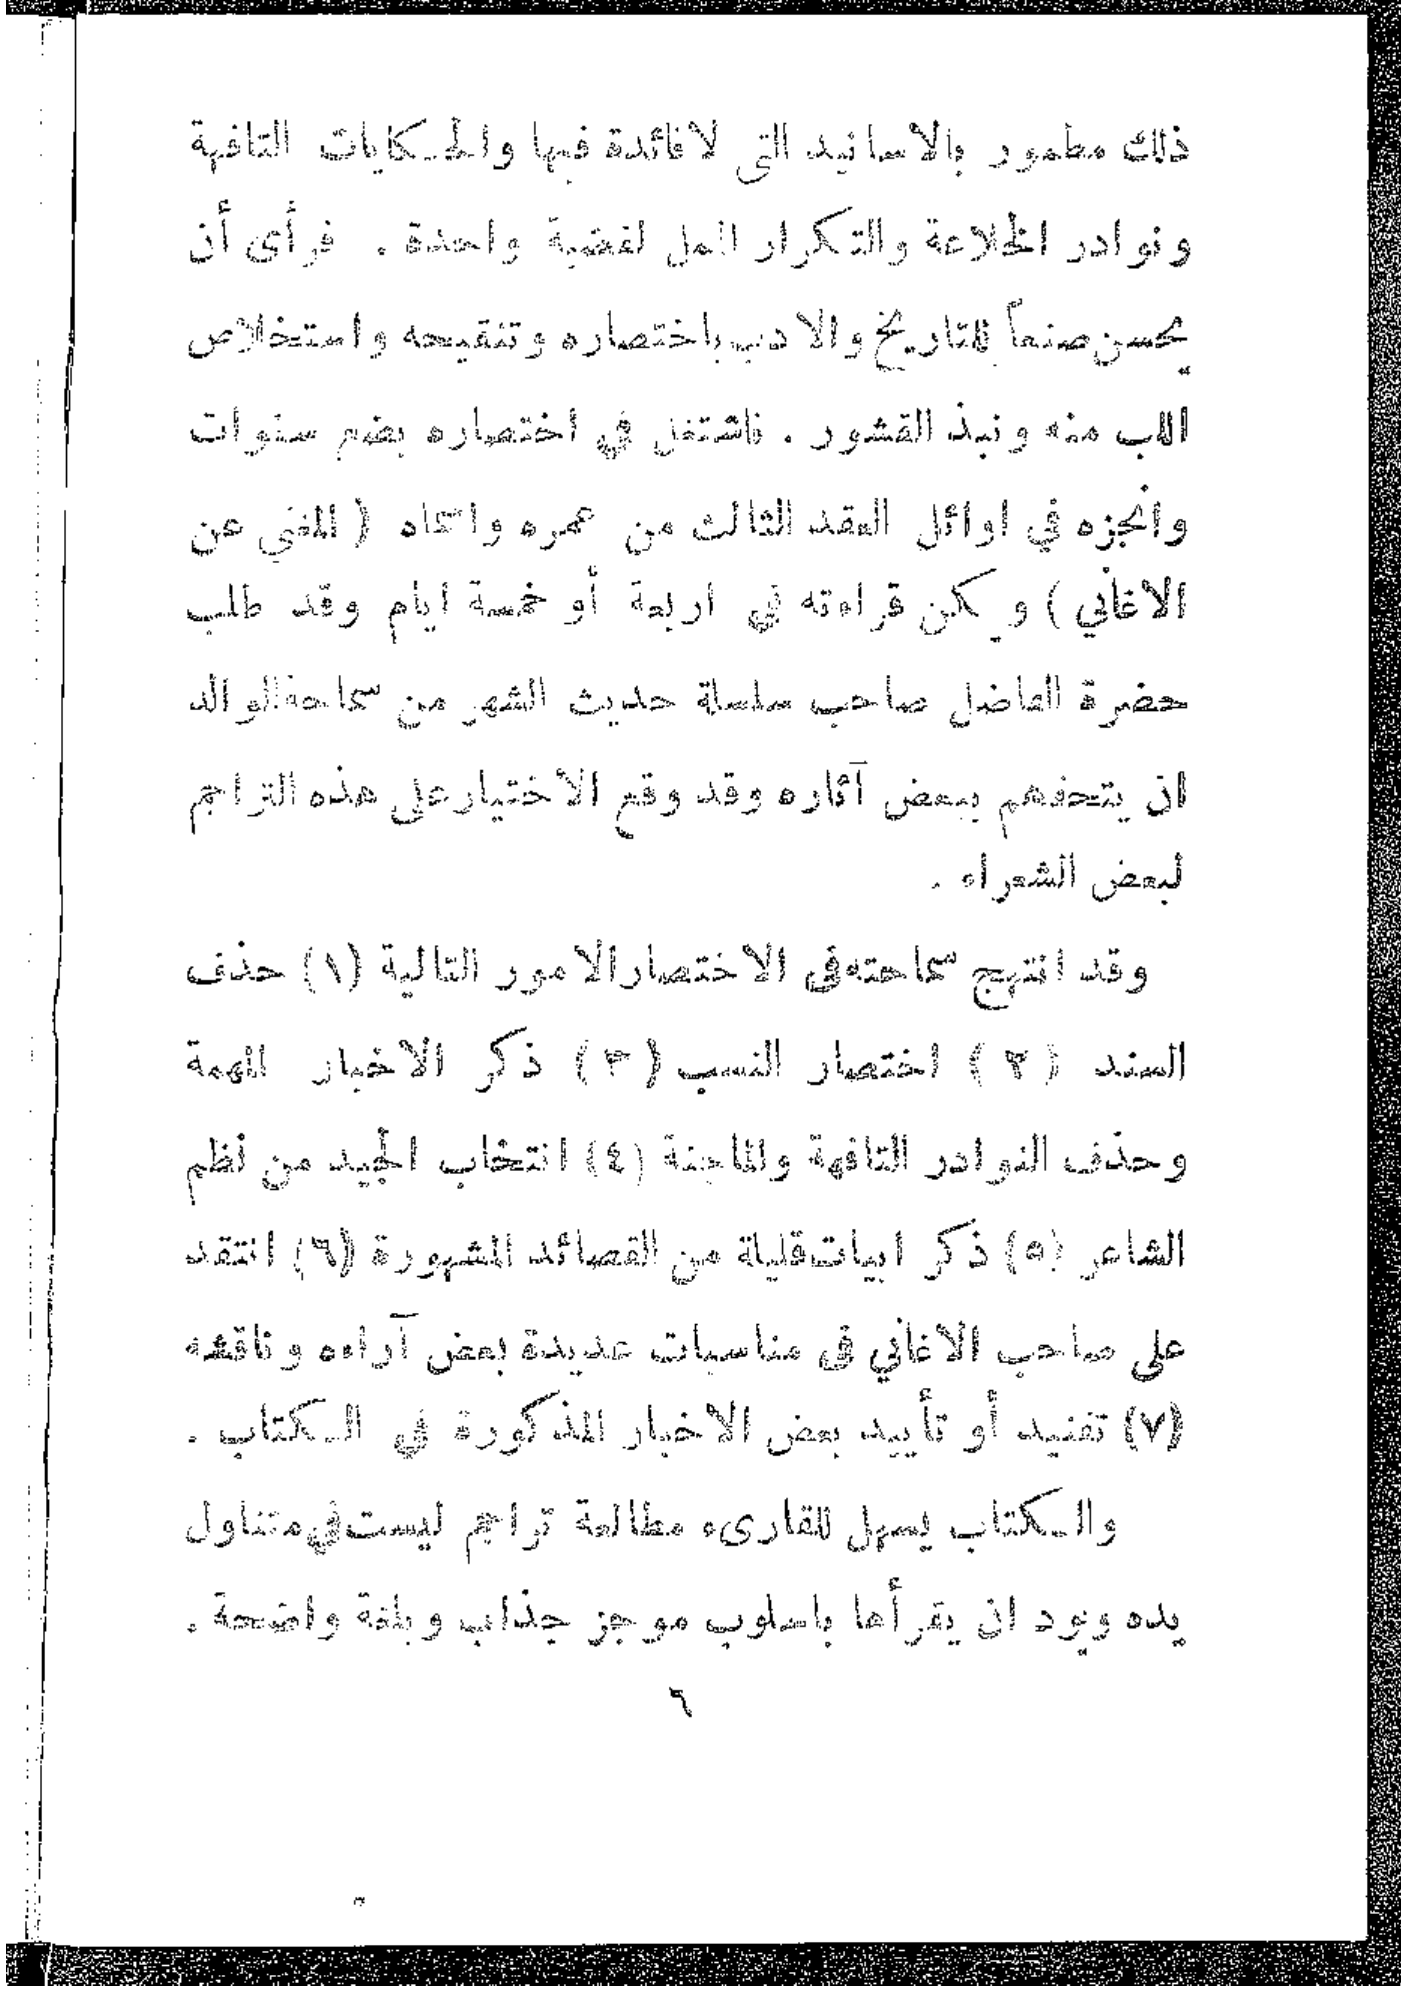 ذلك مطمور بالاسانيد التي لا فائدة فيها والحكايات التافهة
ونوادر الخلاعة والتكرار الممل لقضية واحدة . فرأى أن
يحسن صنعاً للتاريخ والادب باختصاره وتنقيحه واستخلاص
اللب منه ونبذ القشور . فاشتغل في اختصاره بضع سنوات
وانجزه في اوائل العقد الثالث من عمره واسماه ( المغني عن
الاغاني ) ويمكن قراءته في اربعة أو خمسة ايام وقد طلب
حضرة الفاضل صاحب سلسلة حديث الشهر من سماحة الوالد
ان يتحفهم ببعض آثاره وقد وقع الاختيار على هذه التراجم
لبعض الشعراء .
وقد انتهج سماحته في الاختصار الامور التالية (١) حذف
السند (٢) اختصار النسب (٣) ذكر الاخبار المهمة
وحذف النوادر التافهة والماجنة (٤) انتخاب الجيد من نظم
الشاعر (٥) ذكر ابيات قليلة من القصائد المشهورة (٦) انتقد
على صاحب الاغاني في مناسبات عديدة بعض آراءه وناقشه
(٧) تفنيد أو تأييد بعض الاخبار المذكورة في الكتاب .
والكتاب يسهل للقارىء مطالعة تراجم ليست في متناول
يده ويود ان يقرأها باسلوب موجز جذاب وبلغة واضحة .
٦